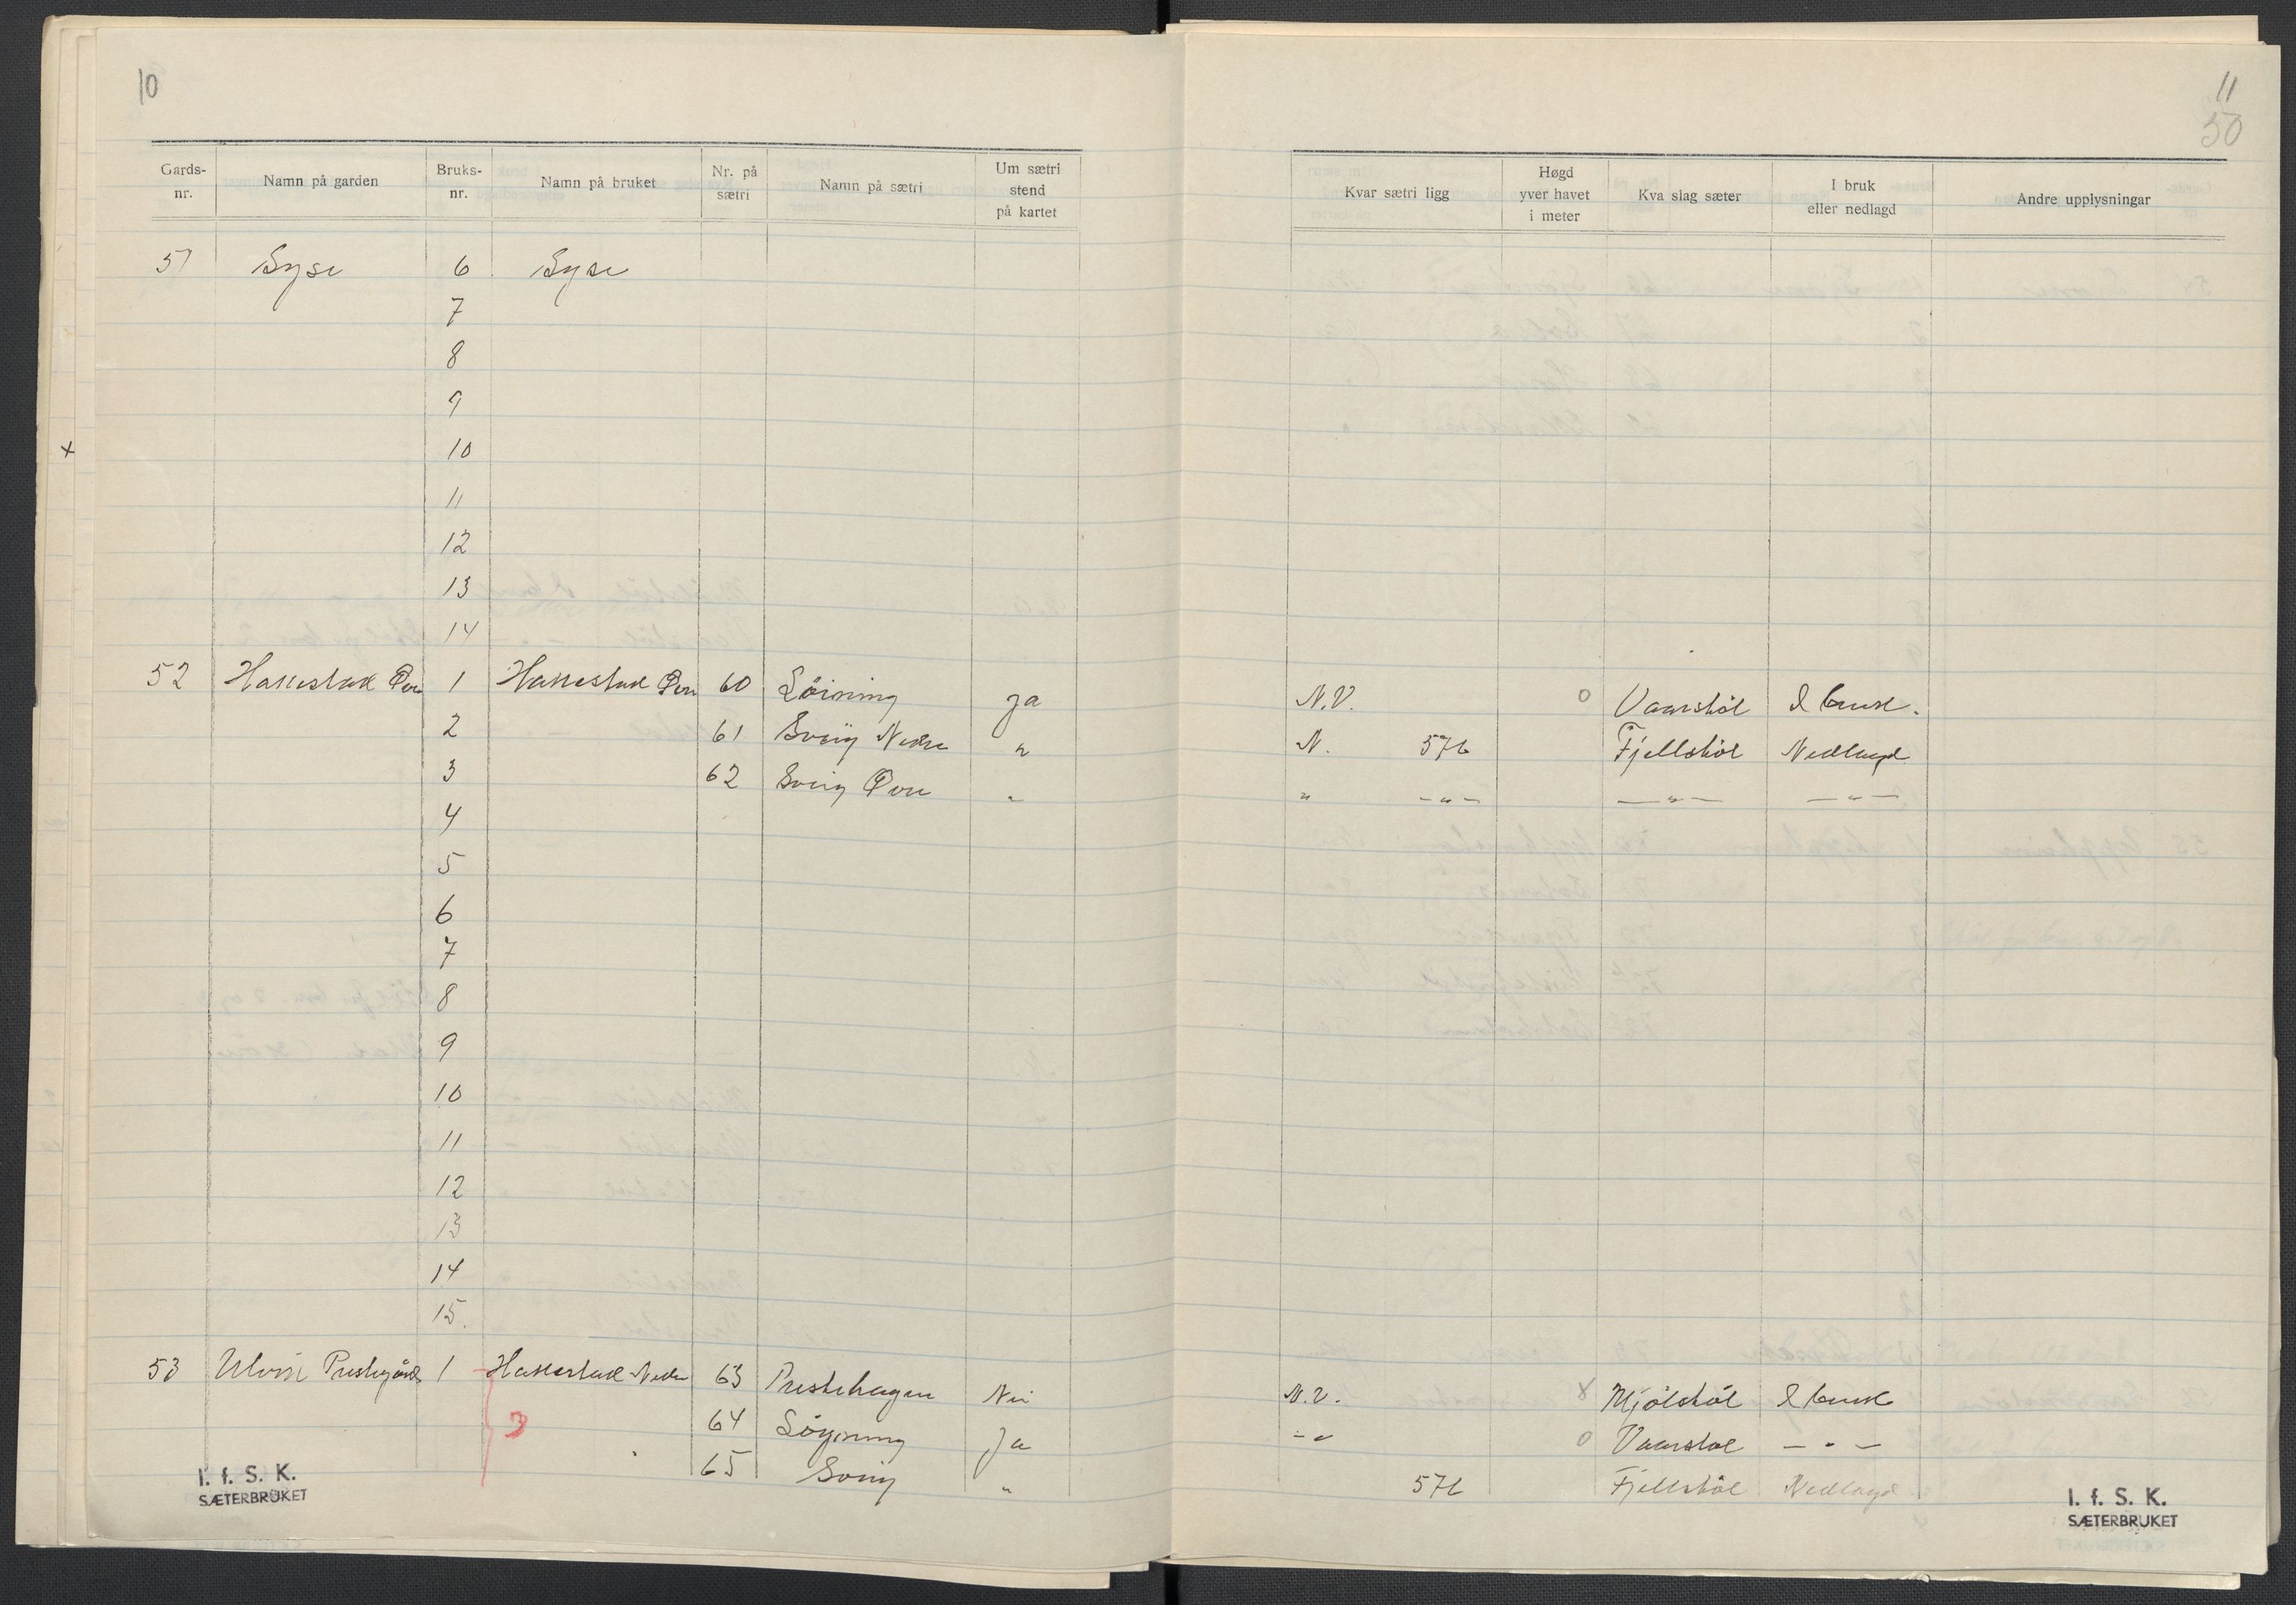 10
Gards-nr. Namn på garden Bruks-nr. Namn på bruket Nr. på sætri Namn på sætri Um sætri stend på kartet
51 Syse 6 Syse
7
8
9
10
11
12
13
14
52 Hakestad Øvre 1 Hakestad Øvre 60 Löining Ja
2 61 Sveig Nedre "
3 62 Sveig Øvre "
4
5
6
7
8
9
10
11
12
13
14
15.
53 Ulvik Prestegård 1 Hakestad Nedre 63 Prestehagen Nei
3 64 Löyning Ja
65 Sveig "
I. f. S. K.
SÆTERBRUKET
11
50
Kvar sætri ligg Høgd yver havet i meter Kva slag sæter I bruk eller nedlagd Andre upplysningar
N.V. o Vaarstöl I bruk.
N. 576 Fjellstöl Nedlagd
" -"- -"- -"-
N.V. x Mjölstöl I bruk
-"- o Vaarstöl -"-
576 Fjellstöl Nedlagd
I. f. S. K.
SÆTERBRUKET